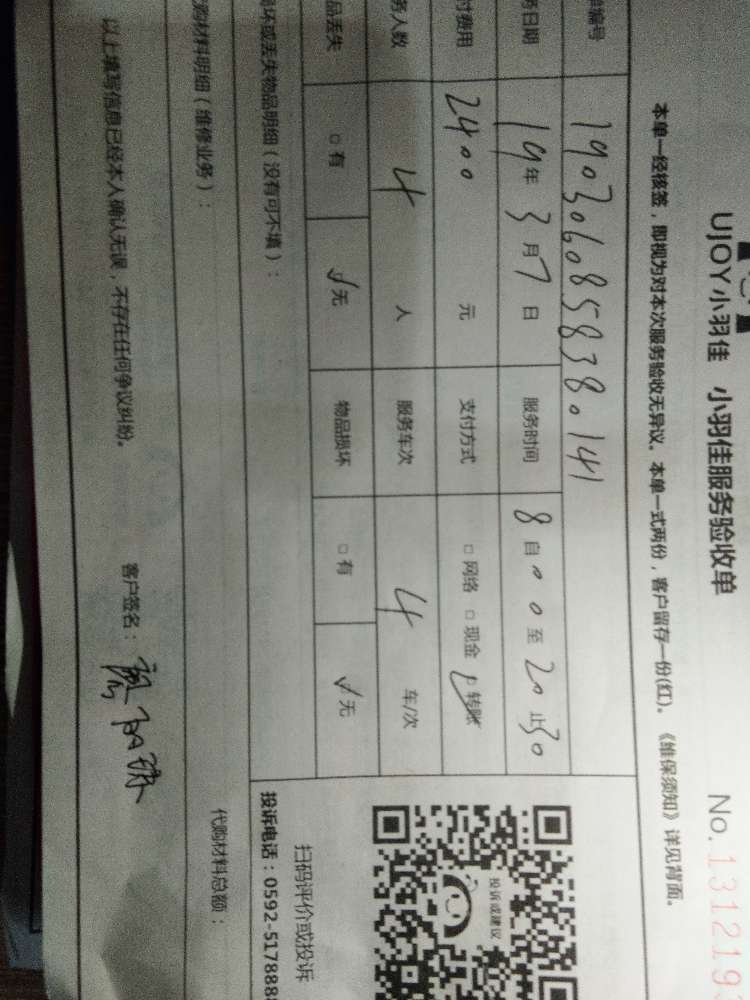 UJOY小羽佳 小羽佳服务验收单
No.131219
本单一经核签，即视为对本次服务验收无异议。本单一式两份，客户留存一份(红)。《维保须知》详见背面。
编号 19030608583380141
日期 19年3月7日 服务时间 8自00至20止30
付费用 2400 元 支付方式 □网络 □现金 ☑转账
务人数 4 人 服务车次 4 车/次
品丢失 □有 ☑无 物品损坏 □有 ☑无
坏或丢失物品明细（没有可不填）：
投诉或建议
扫码评价或投诉
投诉电话：0592-517888
购材料明细（维修业务）：
代购材料总额：
以上填写信息已经本人确认无误，不存在任何争议纠纷。
客户签名：